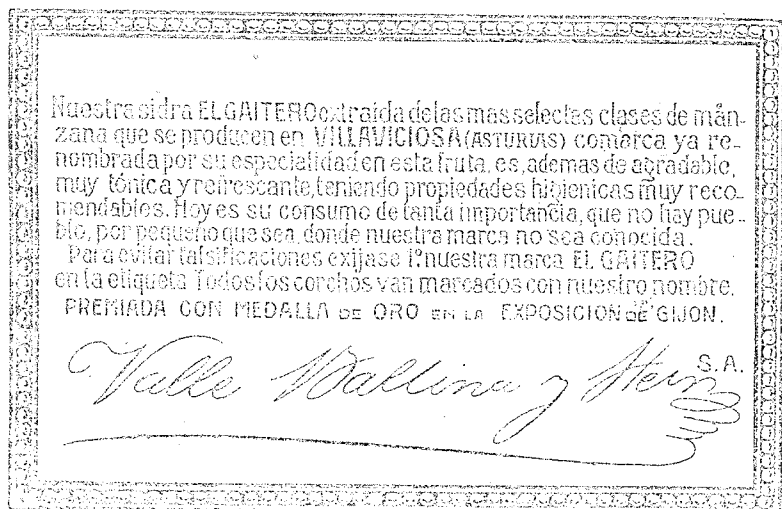 Nuestra sidra EL GAITERO extraida de las mas selectas clases de man-
zana que se producen en VILLAVICIOSA (ASTURIAS) comarca ya re-
nombrada por su especialidad en esta fruta, es, ademas de agradable,
muy tónica y refrescante, teniendo propiedades higienicas muy reco-
mendables. Hoy es su consumo de tanta importancia, que no hay pue-
blo, por pequeño que sea, donde nuestra marca no sea conocida.
Para evitar falsificaciones exijase 1º nuestra marca EL GAITERO
en la etiqueta Todos los corchos van marcados con nuestro nombre.
PREMIADA CON MEDALLA DE ORO EN LA EXPOSICION DE GIJON.
Valle Ballina y
S.A.